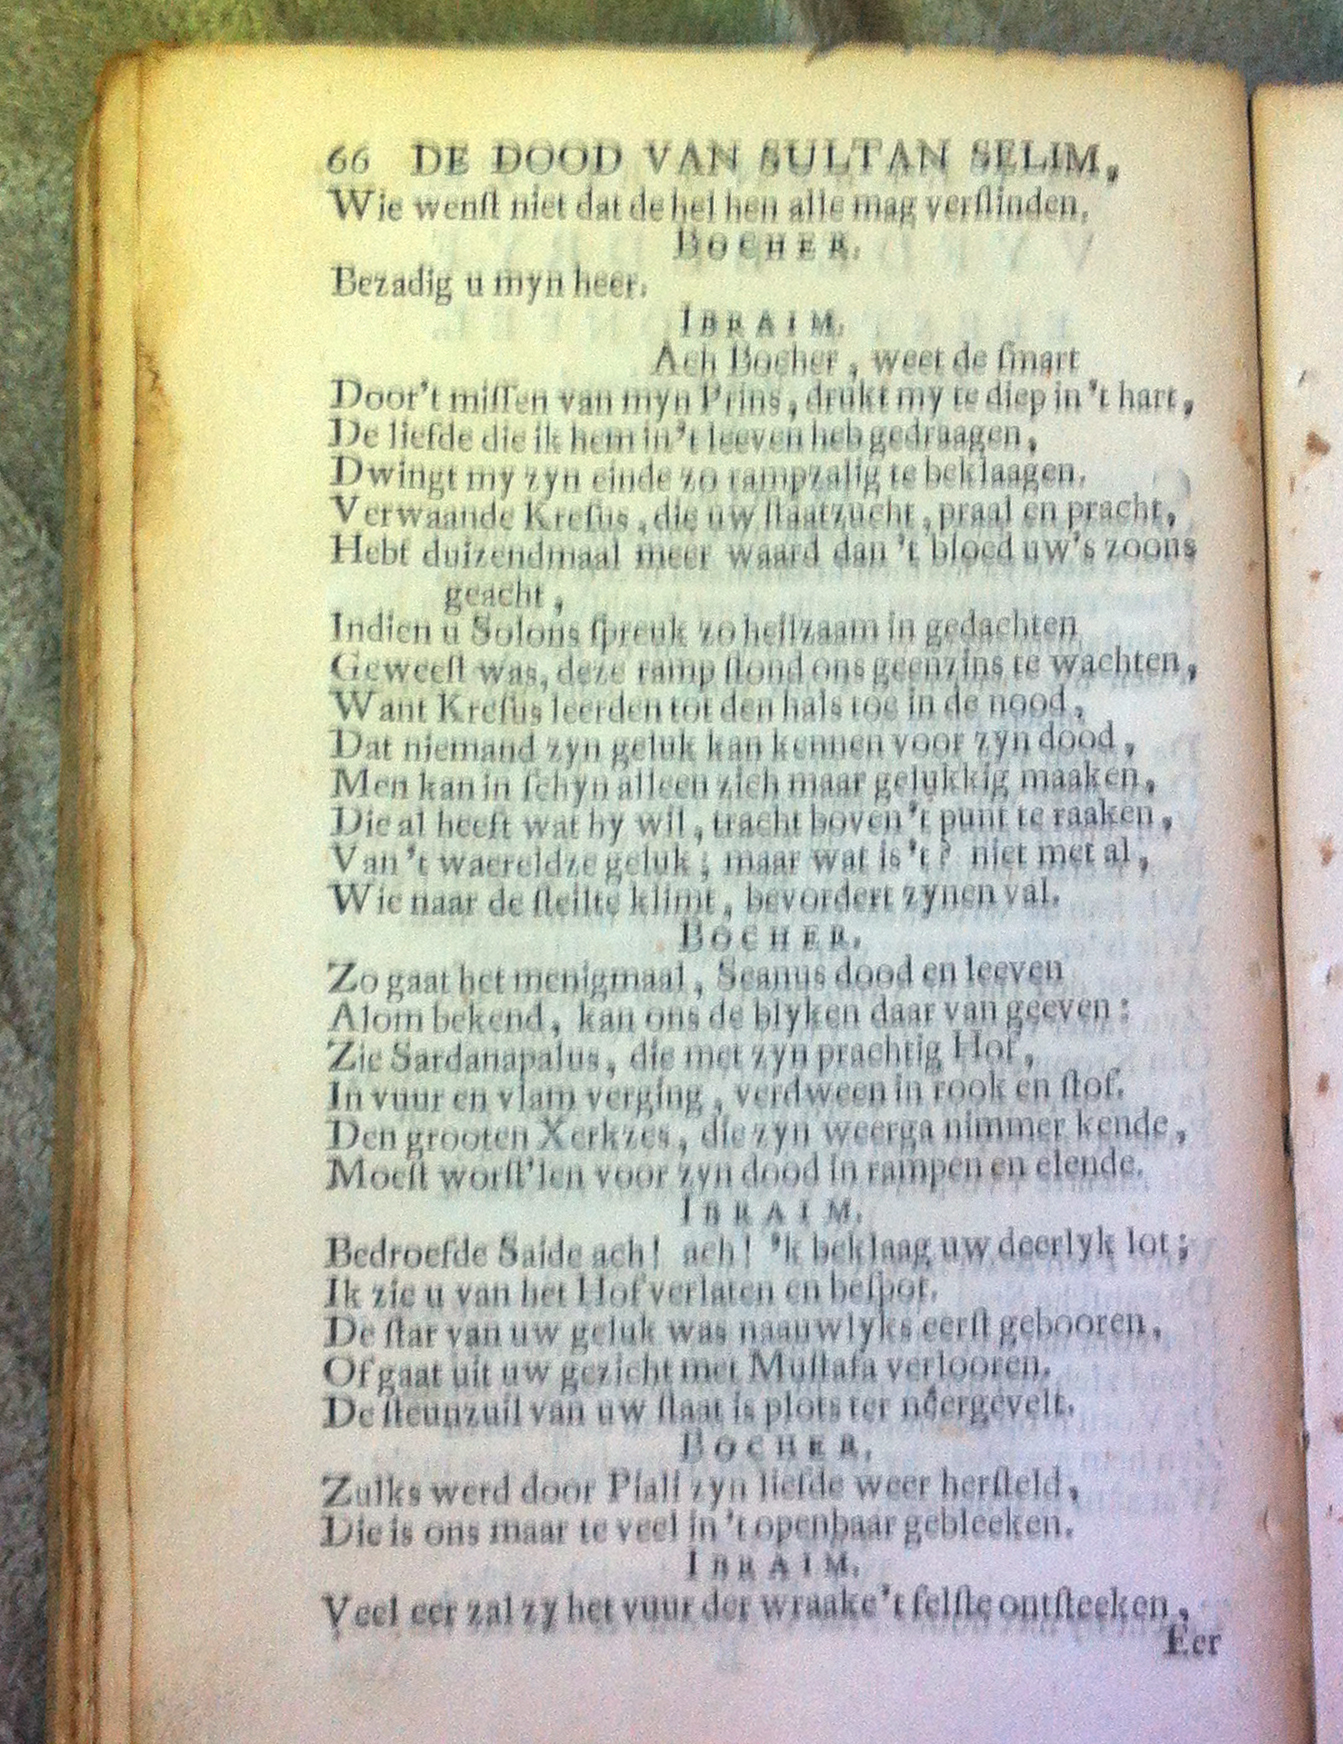 66 DE DOOD VAN SULTAN SELIM,
Wie wenſt niet dat de hel hen alle mag verſlinden.
BOCHER.
Bezadig u myn heer.
IBRAIM.
Ach Bocher, weet de ſmart
Door't miſſen van myn Prins, drukt my te diep in 't hart,
De liefde die ik hem in't leeven heb gedraagen,
Dwingt my zyn einde zo rampzalig te beklaagen.
Verwaande Kreſus, die uw ſtaatzucht, praal en pracht,
Hebt duizendmaal meer waard dan 't bloed uw's zoons
geacht,
Indien u Solons ſpreuk zo heilzaam in gedachten
Geweeſt was, deze ramp ſtond ons geenzins te wachten,
Want Kreſus leerden tot den hals toe in de nood,
Dat niemand zyn geluk kan kennen voor zyn dood,
Men kan in ſchyn alleen zich maar gelukkig maaken,
Die al heeft wat hy wil, tracht boven 't punt te raaken,
Van 't waereldze geluk; maar wat is 't? niet met al,
Wie naar de ſteilte klimt, bevordert zynen val.
BOCHER.
Zo gaat het menigmaal, Seanus dood en leeven
Alom bekend, kan ons de blyken daar van geeven:
Zie Sardanapalus, die met zyn prachtig Hof,
In vuur en vlam verging, verdween in rook en ſtof.
Den grooten Xerkzes, die zyn weerga nimmer kende,
Moeſt worſt'len voor zyn dood in rampen en elende.
IBRAIM.
Bedroefde Saide ach! ach! 'k beklaag uw deerlyk lot;
Ik zie u van het Hof verlaten en beſpot.
De ſtar van uw geluk was naauwlyks eerſt gebooren,
Of gaat uit uw gezicht met Muſtafa verlooren.
De ſteunzuil van uw ſtaat is plots ter nêergevelt.
BOCHER.
Zulks werd door Piali zyn liefde weer herſteld,
Die is ons maar te veel in 't openbaar gebleeken.
IBRAIM.
Veel eer zal zy het vuur der wraake 't felſte ontſteeken,
Eer